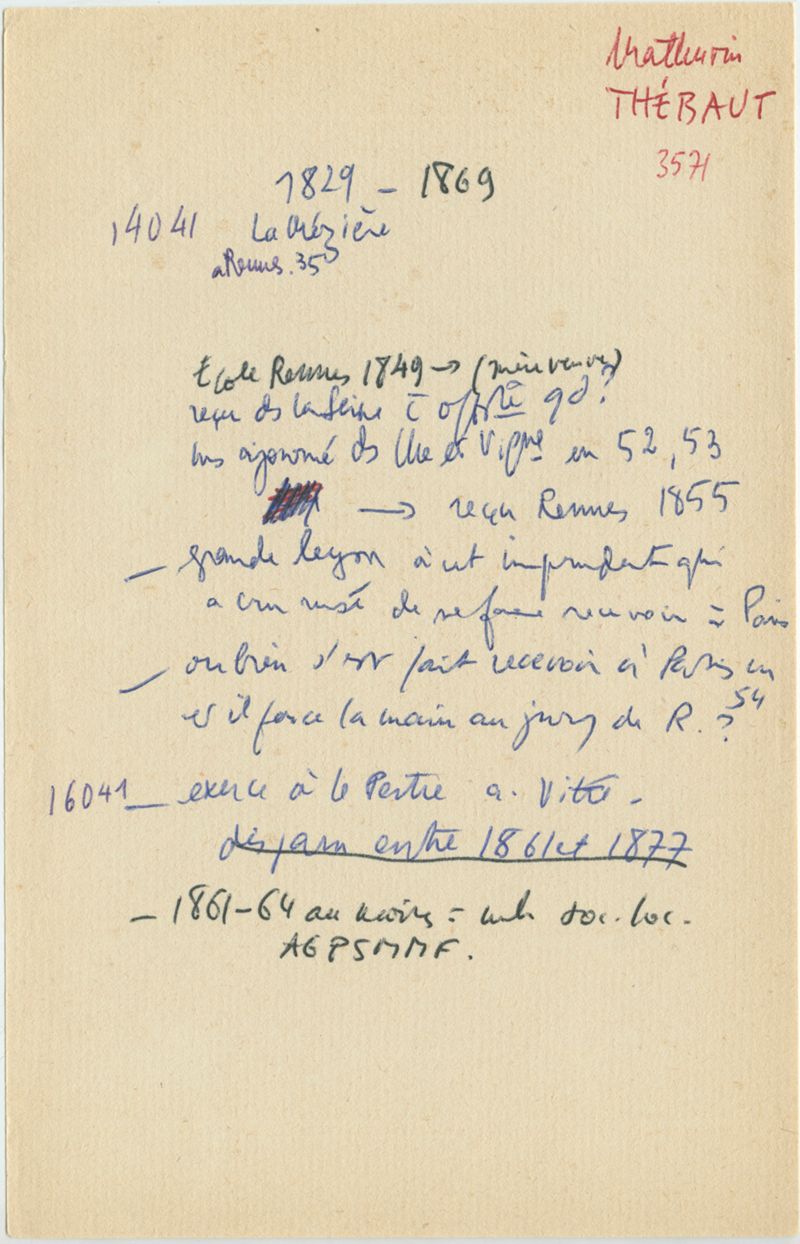 Mathurin
THÉBAUT
3571
1829 - 1869
14041 La Mézière
a Rennes. 35
Ecole Rennes 1849 → (mère veuve)
reçu ds la Seine c̄ off sté qd ?
ms ajourné ds Ille et V en 52, 53
→ reçu Rennes 1855
— grande leçon à cet imprudent qui
a cru rusé de se faire recevoir à Paris
— ou bien s'est fait recevoir à Paris en 54
et il force la main au jury de R. ?
16041 — exerce à le Pertre a. Vitré -
disparu entre 1861 et 1877
— 1861-64 au moins = mb soc. loc.
AGPSMMF.